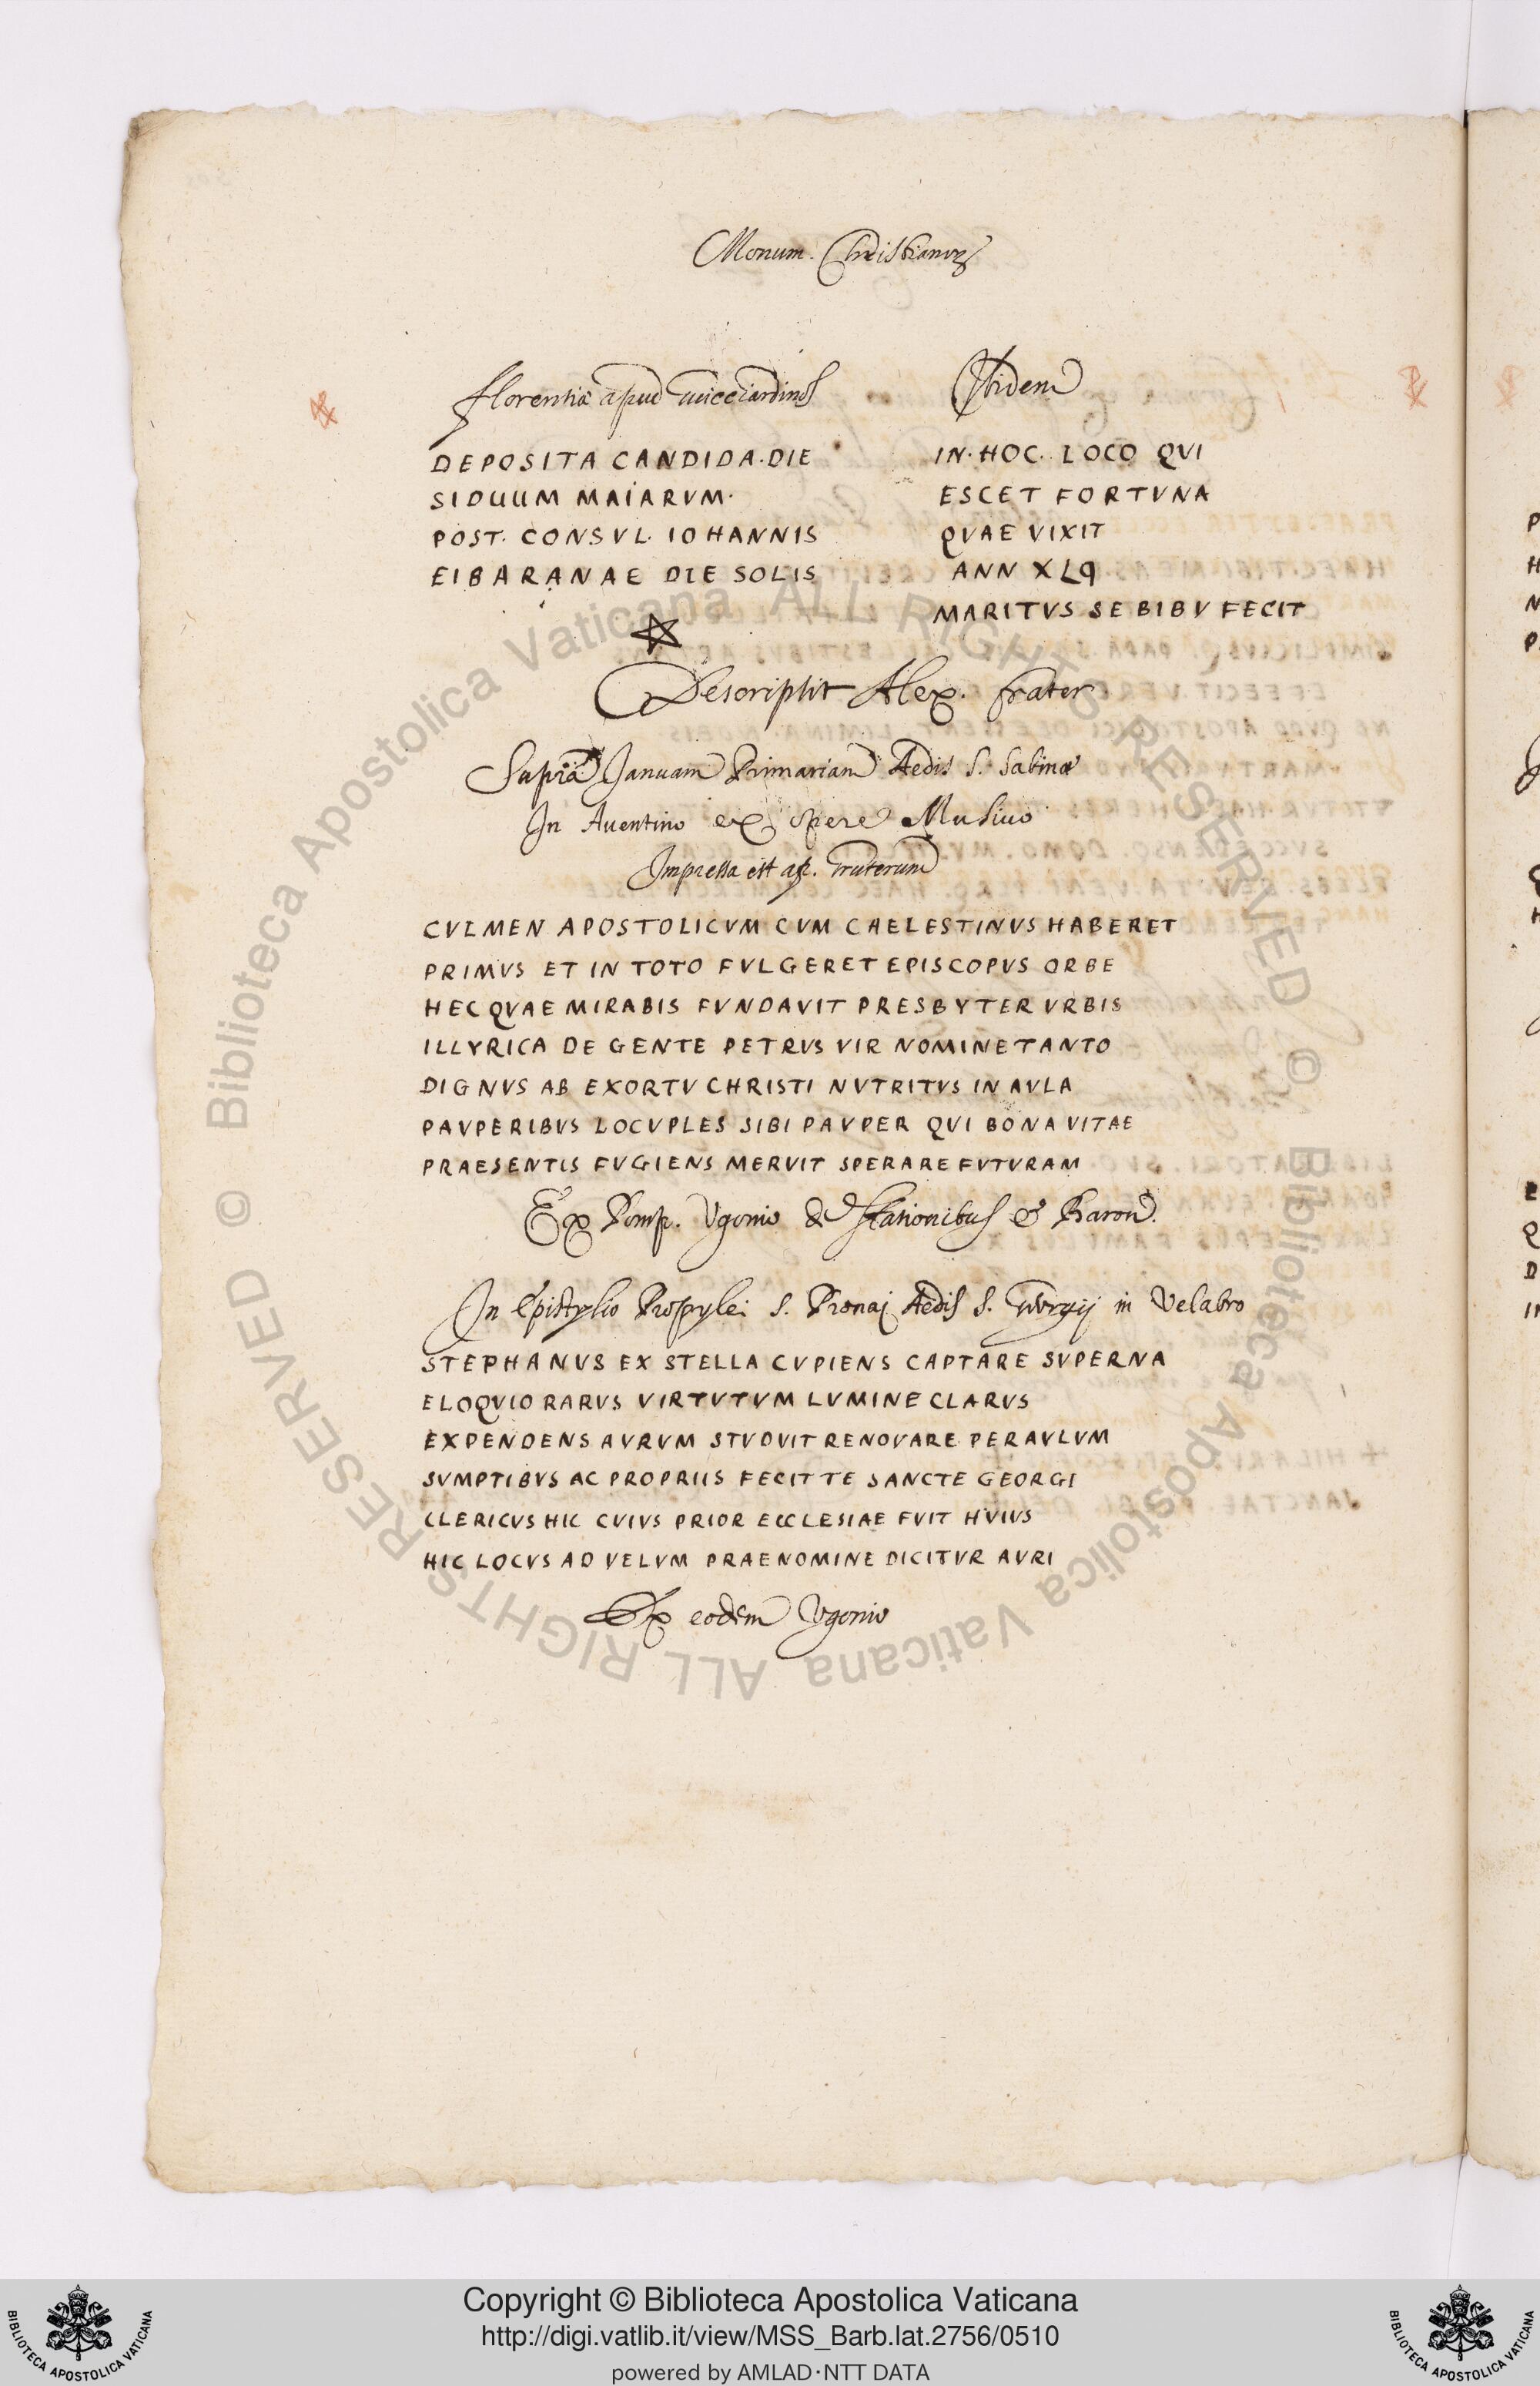 Monum. Christianor
Florentiae apud Guicciardinos
DEPOSITA CANDIDA.DIE
SIDUUM MAIARVM.
POST. CONSVL. IOHANNIS
EIBARANAE DIE SOLIS
Ibidem
IN. HOC. LOCO QVI
ESCET FORTVNA
QVAE VIXIT
ANN XL
MARITVS SE BIBV FECIT
Descripsit Alex. frater
Supra Januam Primariam Aedis S. Sabinae
In Auentino ex opere Musiuo
Impressa est ap. Gruterum
CVLMEN APOSTOLICVM CVM CAELESTINVS HABERET
PRIMVS ET IN TOTO FVLGERET EPISCOPVS ORBE
HEC QVAE MIRABIS FVNDAVIT PRESBYTER VRBIS
ILLYRICA DE GENTE PETRVS VIR NOMINE TANTO
DIGNVS AB EXORTV CHRISTI NVTRITVS IN AVLA
PAVPERIBVS LOCVPLES SIBI PAVPER QVI BONA VITAE
PRAESENTIS FVGIENS MERVIT SPERARE FVTVRAM
Ex Pomp. Vgonio de Stationibus et Baron.
In Epistylio Propylei S. Pronai Aedis S. Georgij in Velabro
STEPHANVS EX STELLA CVPIENS CAPTARE SVPERNA
ELOQVIO RARVS VIRTVTVM LVMINE CLARVS
EXPENDENS AVRVM STVDVIT RENOVARE PERAVLVM
SVMPTIBVS AC PROPRIIS FECIT TE SANCTE GEORGI
CLERICVS HIC CVIVS PRIOR ECCLESIAE FVIT HVIVS
HIC LOCVS AD VELVM PRAENOMINE DICITVR AVRI
Ex eodem Vgonio
© Biblioteca Apostolica Vaticana ALL RIGHTS RESERVED
© Biblioteca Apostolica Vaticana ALL RIGHTS RESERVED
Copyright © Biblioteca Apostolica Vaticana
http://digi.vatlib.it/view/MSS_Barb.lat.2756/0510
powered by AMLAD·NTT DATA
BIBLIOTECA APOSTOLICA VATICANA
BIBLIOTECA APOSTOLICA VATICANA